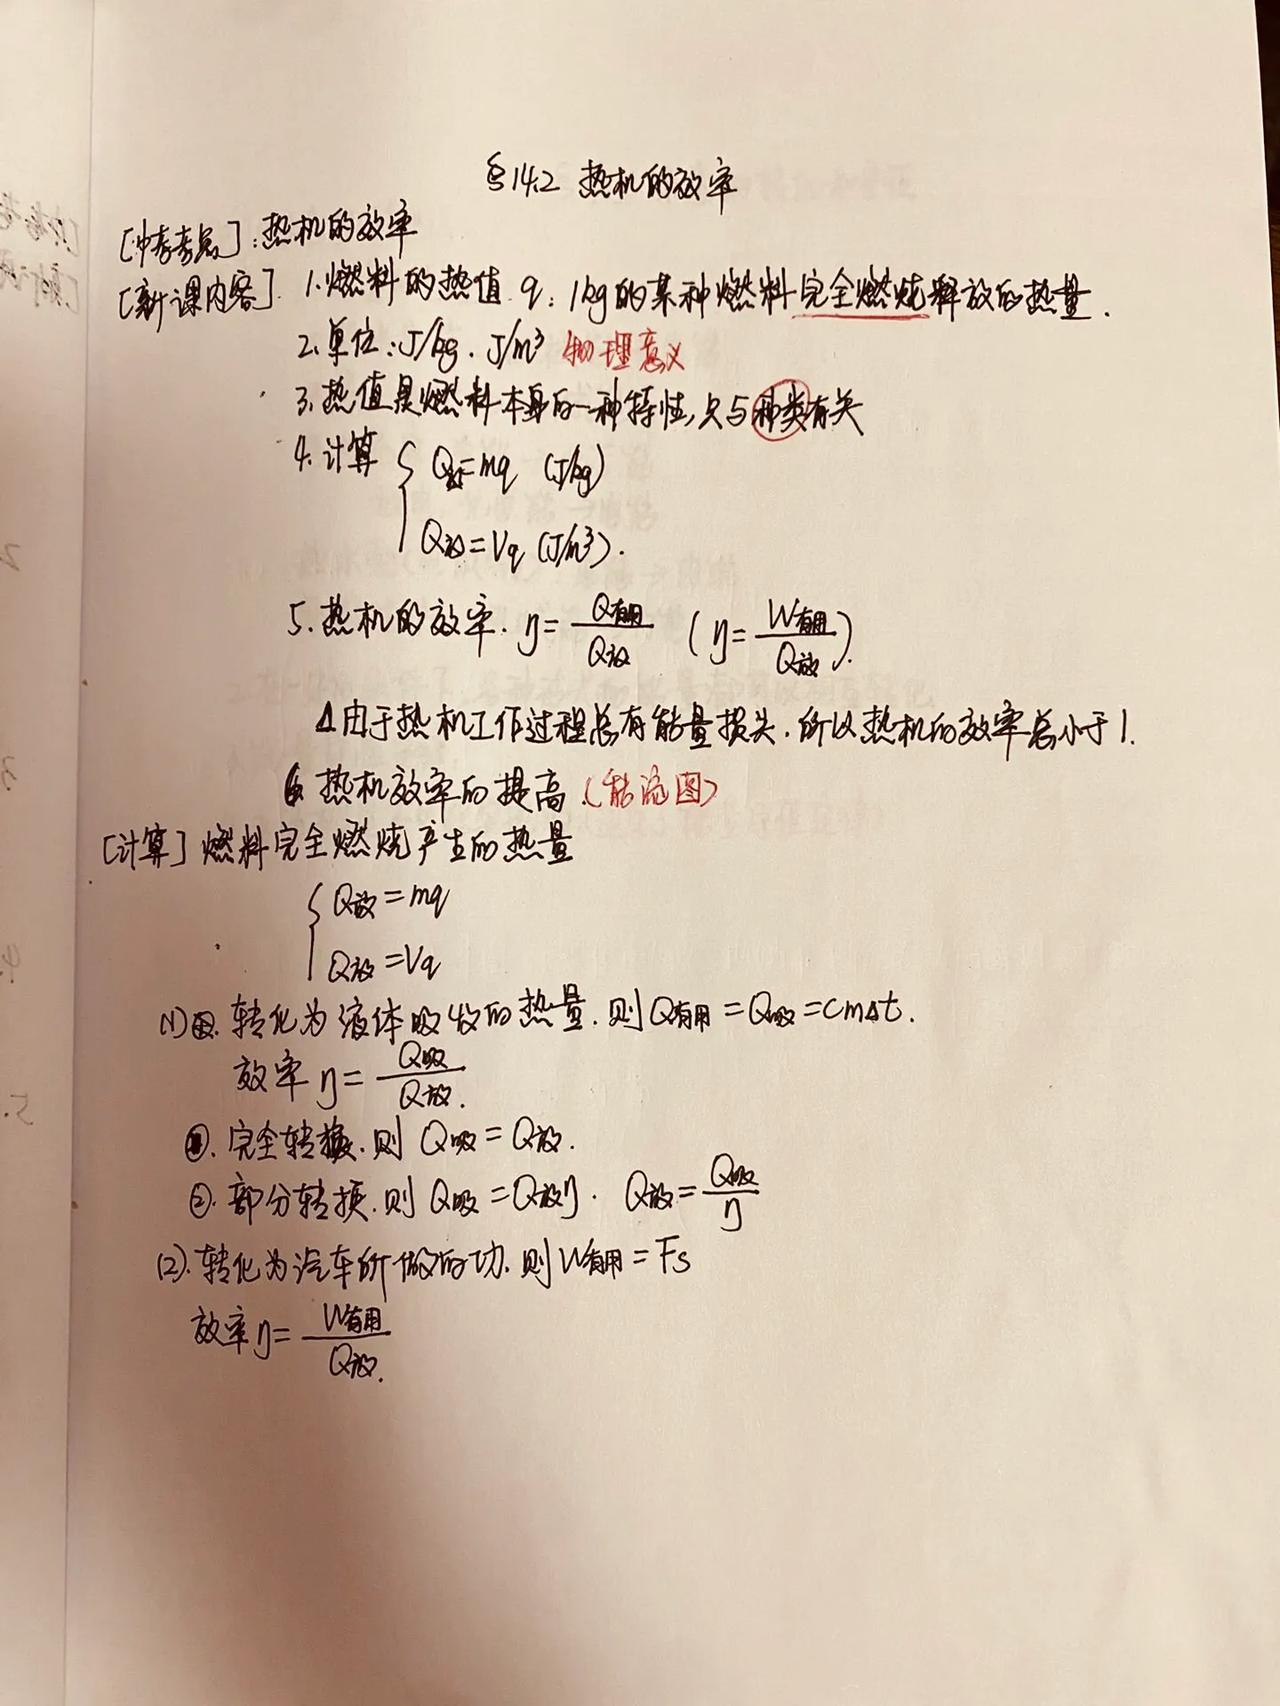 §14.2 热机的效率
[中考考点]:热机的效率
[新课内容] 1.燃料的热值 q: 1kg的某种燃料完全燃烧释放的热量.
2.单位:J/kg. J/m³ 物理意义
3.热值是燃料本身的一种特性,只与种类有关
4.计算 { Q放=mq (J/kg)
Q放=Vq (J/m³).
5.热机的效率. η= Q有用/Q放 (η= W有用/Q放).
Δ由于热机工作过程总有能量损失.所以热机的效率总小于1.
6.热机效率的提高.(能流图)
[计算] 燃料完全燃烧产生的热量
{ Q放=mq
Q放=Vq
(1) 转化为液体吸收的热量.则Q有用=Q吸=cmΔt.
效率η= Q吸/Q放.
①.完全转换.则 Q吸=Q放.
②.部分转换.则 Q吸=Q放η. Q放=Q吸/η
(2).转化为汽车所做的功.则W有用=Fs
效率η= W有用/Q放.